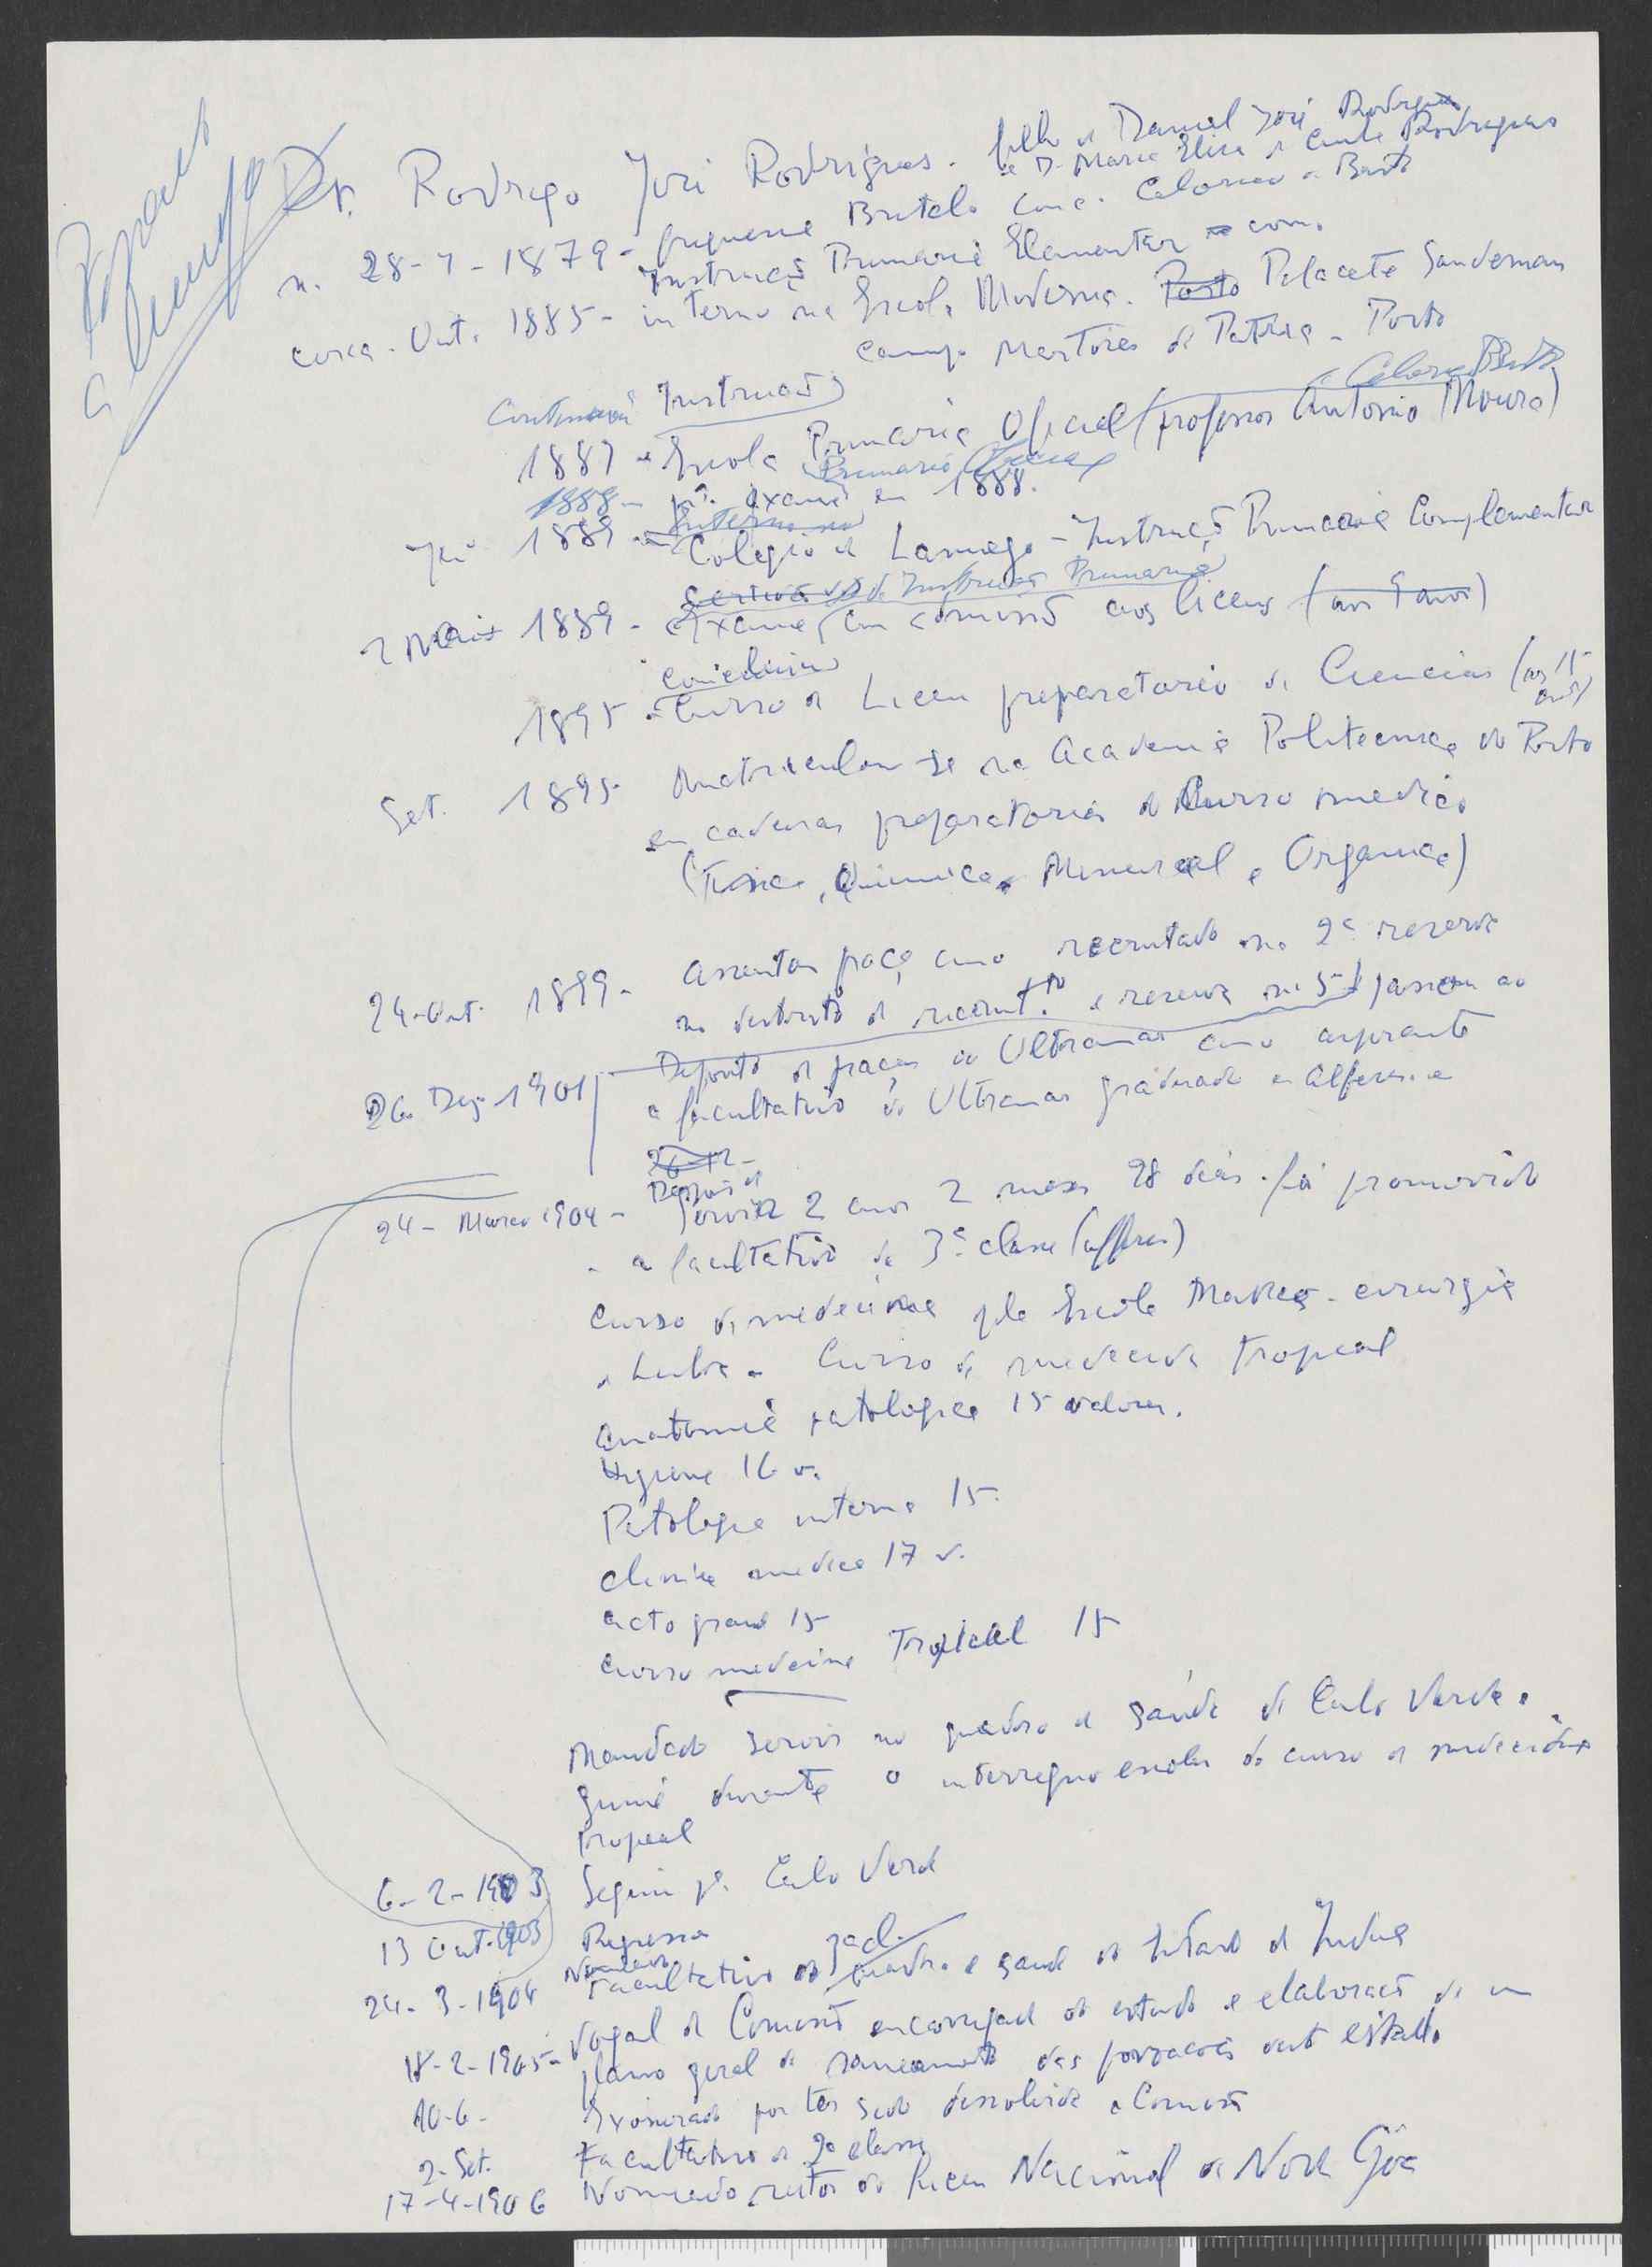 Dr. Rodrigo José Rodrigues. filho de Daniel José Rodrigues
e D. Maria Elisa Rodrigues
n. 28-7-1879 - freguesia Britelo conc. Celorico de Basto
Instrução Primaria Elementar com.
cerca. Out. 1885 - interno na Escola Moderna. Porto Palacete Sandeman
campo Martires da Patria - Porto
Continuou Instrução
Celorico Basto
1887 - Escola Primaria Oficial (professor Antonio Moura)
Primario
1888 - exame em 1888.
Interno no
1889 - Colegio de Lamego - Instrução Primaria Complementar
de Instrução Primaria
Maio 1889 - Exame de admissão aos liceus (aos 9 anos)
Concluiu
1895 - Curso do Liceu preparatorio de Ciencias (aos 15 anos)
Set. 1895 - Matriculou-se na Academia Politecnica do Porto
em cadeiras preparatorias do Curso medico
(Fisica, Quimica Mineral e Organica)
24-Out. 1899 - assentou praça como recrutado na 2ª reserva
no distrito de recrut.to e reserva nº 5 passou ao
26 Dez 1901 Deposito de praças do Ultramar como aspirante
a facultativo do Ultramar graduado em alferes
26-12-
Depois de
24 - Março 1904 - Servir 2 anos 2 meses 28 dias. foi promovido
a facultativo de 3ª classe (alferes)
Curso de medicina pela Escola Medico-cirurgica
de Lisboa - Curso de medicina tropical
Anatomia patologica 15 valores.
Higiene 16 v.
Patologia interna 15.
Clinica medica 17 v.
Acto grande 15
Curso medicina Tropical 15
Mandado servir no quadro de saúde de Cabo Verde e
Guiné durante o interregno escolar do curso de medicina
tropical
6-2-1903 Seguiu pª Cabo Verde
13 Out. 1903 Regressa
Nomeado 3ª cl.
24-3-1904 Facultativo do quadro de saude do Estado da India
18-2-1905 - Vogal da Comissão encarregada do estudo e elaboração de um
plano geral de saneamento das povoações deste estado
10-6- Exonerado por ter sido dissolvida a Comissão
2-Set. Facultativo de 2ª classe
17-4-1906 Nomeado reitor do Liceu Nacional de Nova Gôa